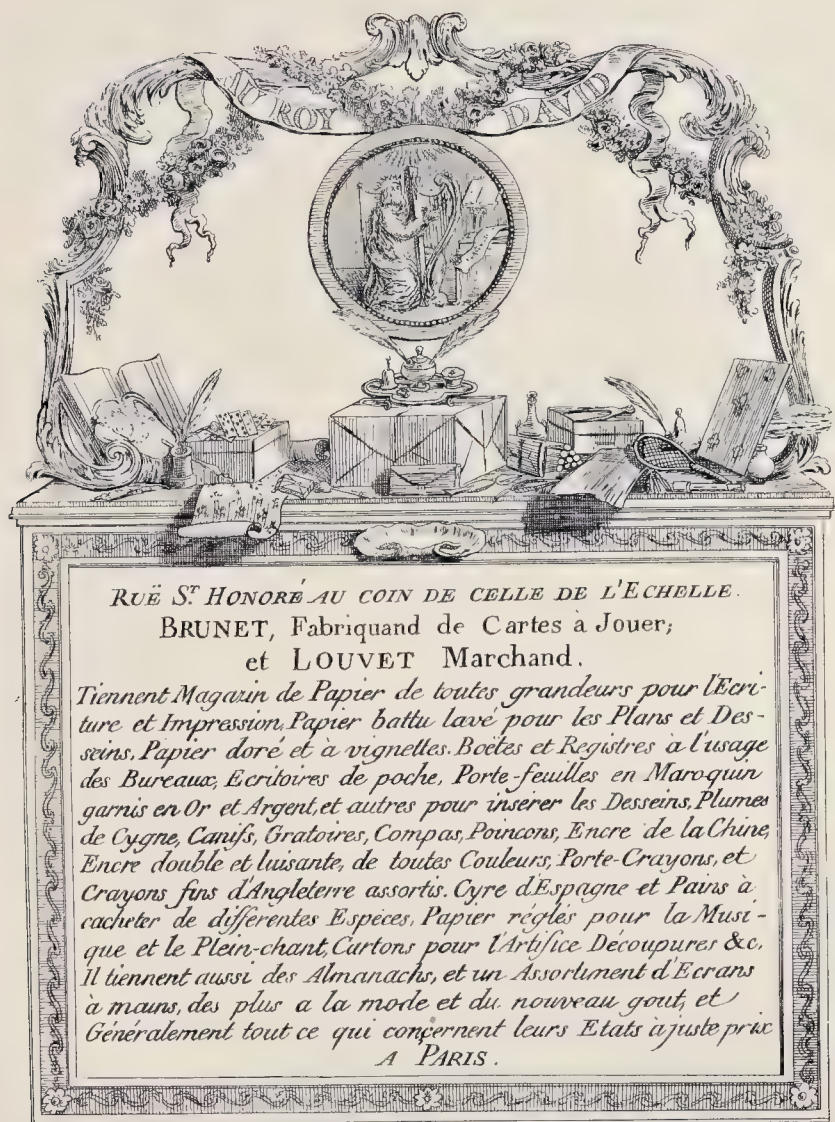 AU ROY DAVID
RUË S.T HONORÉ AU COIN DE CELLE DE L'ECHELLE.
BRUNET, Fabriquand de Cartes à Jouer;
et LOUVET Marchand.
Tiennent Magazin de Papier de toutes grandeurs pour l'Ecri-
ture et Impression, Papier battu lavé pour les Plans et Des-
seins, Papier doré et à vignettes. Boëtes et Registres à l'usage
des Bureaux, Ecritoires de poche, Porte-feuilles en Maroquin
garnis en Or et Argent, et autres pour inserer les Desseins, Plumes
de Cygne, Canifs, Gratoires, Compas, Poincons, Encre de la Chine,
Encre double et luisante, de toutes Couleurs, Porte-Crayons, et
Crayons fins d'Angleterre assortis. Cyre d'Espagne et Pains à
cacheter de différentes Espèces, Papier réglés pour la Musi-
que et le Plein-chant, Cartons pour l'Artifice Découpures &c.
Il tiennent aussi des Almanachs, et un Assortiment d'Ecrans
à mains, des plus a la mode et du nouveau gout, et
Généralement tout ce qui conçernent leurs Etats à juste prix
A PARIS.